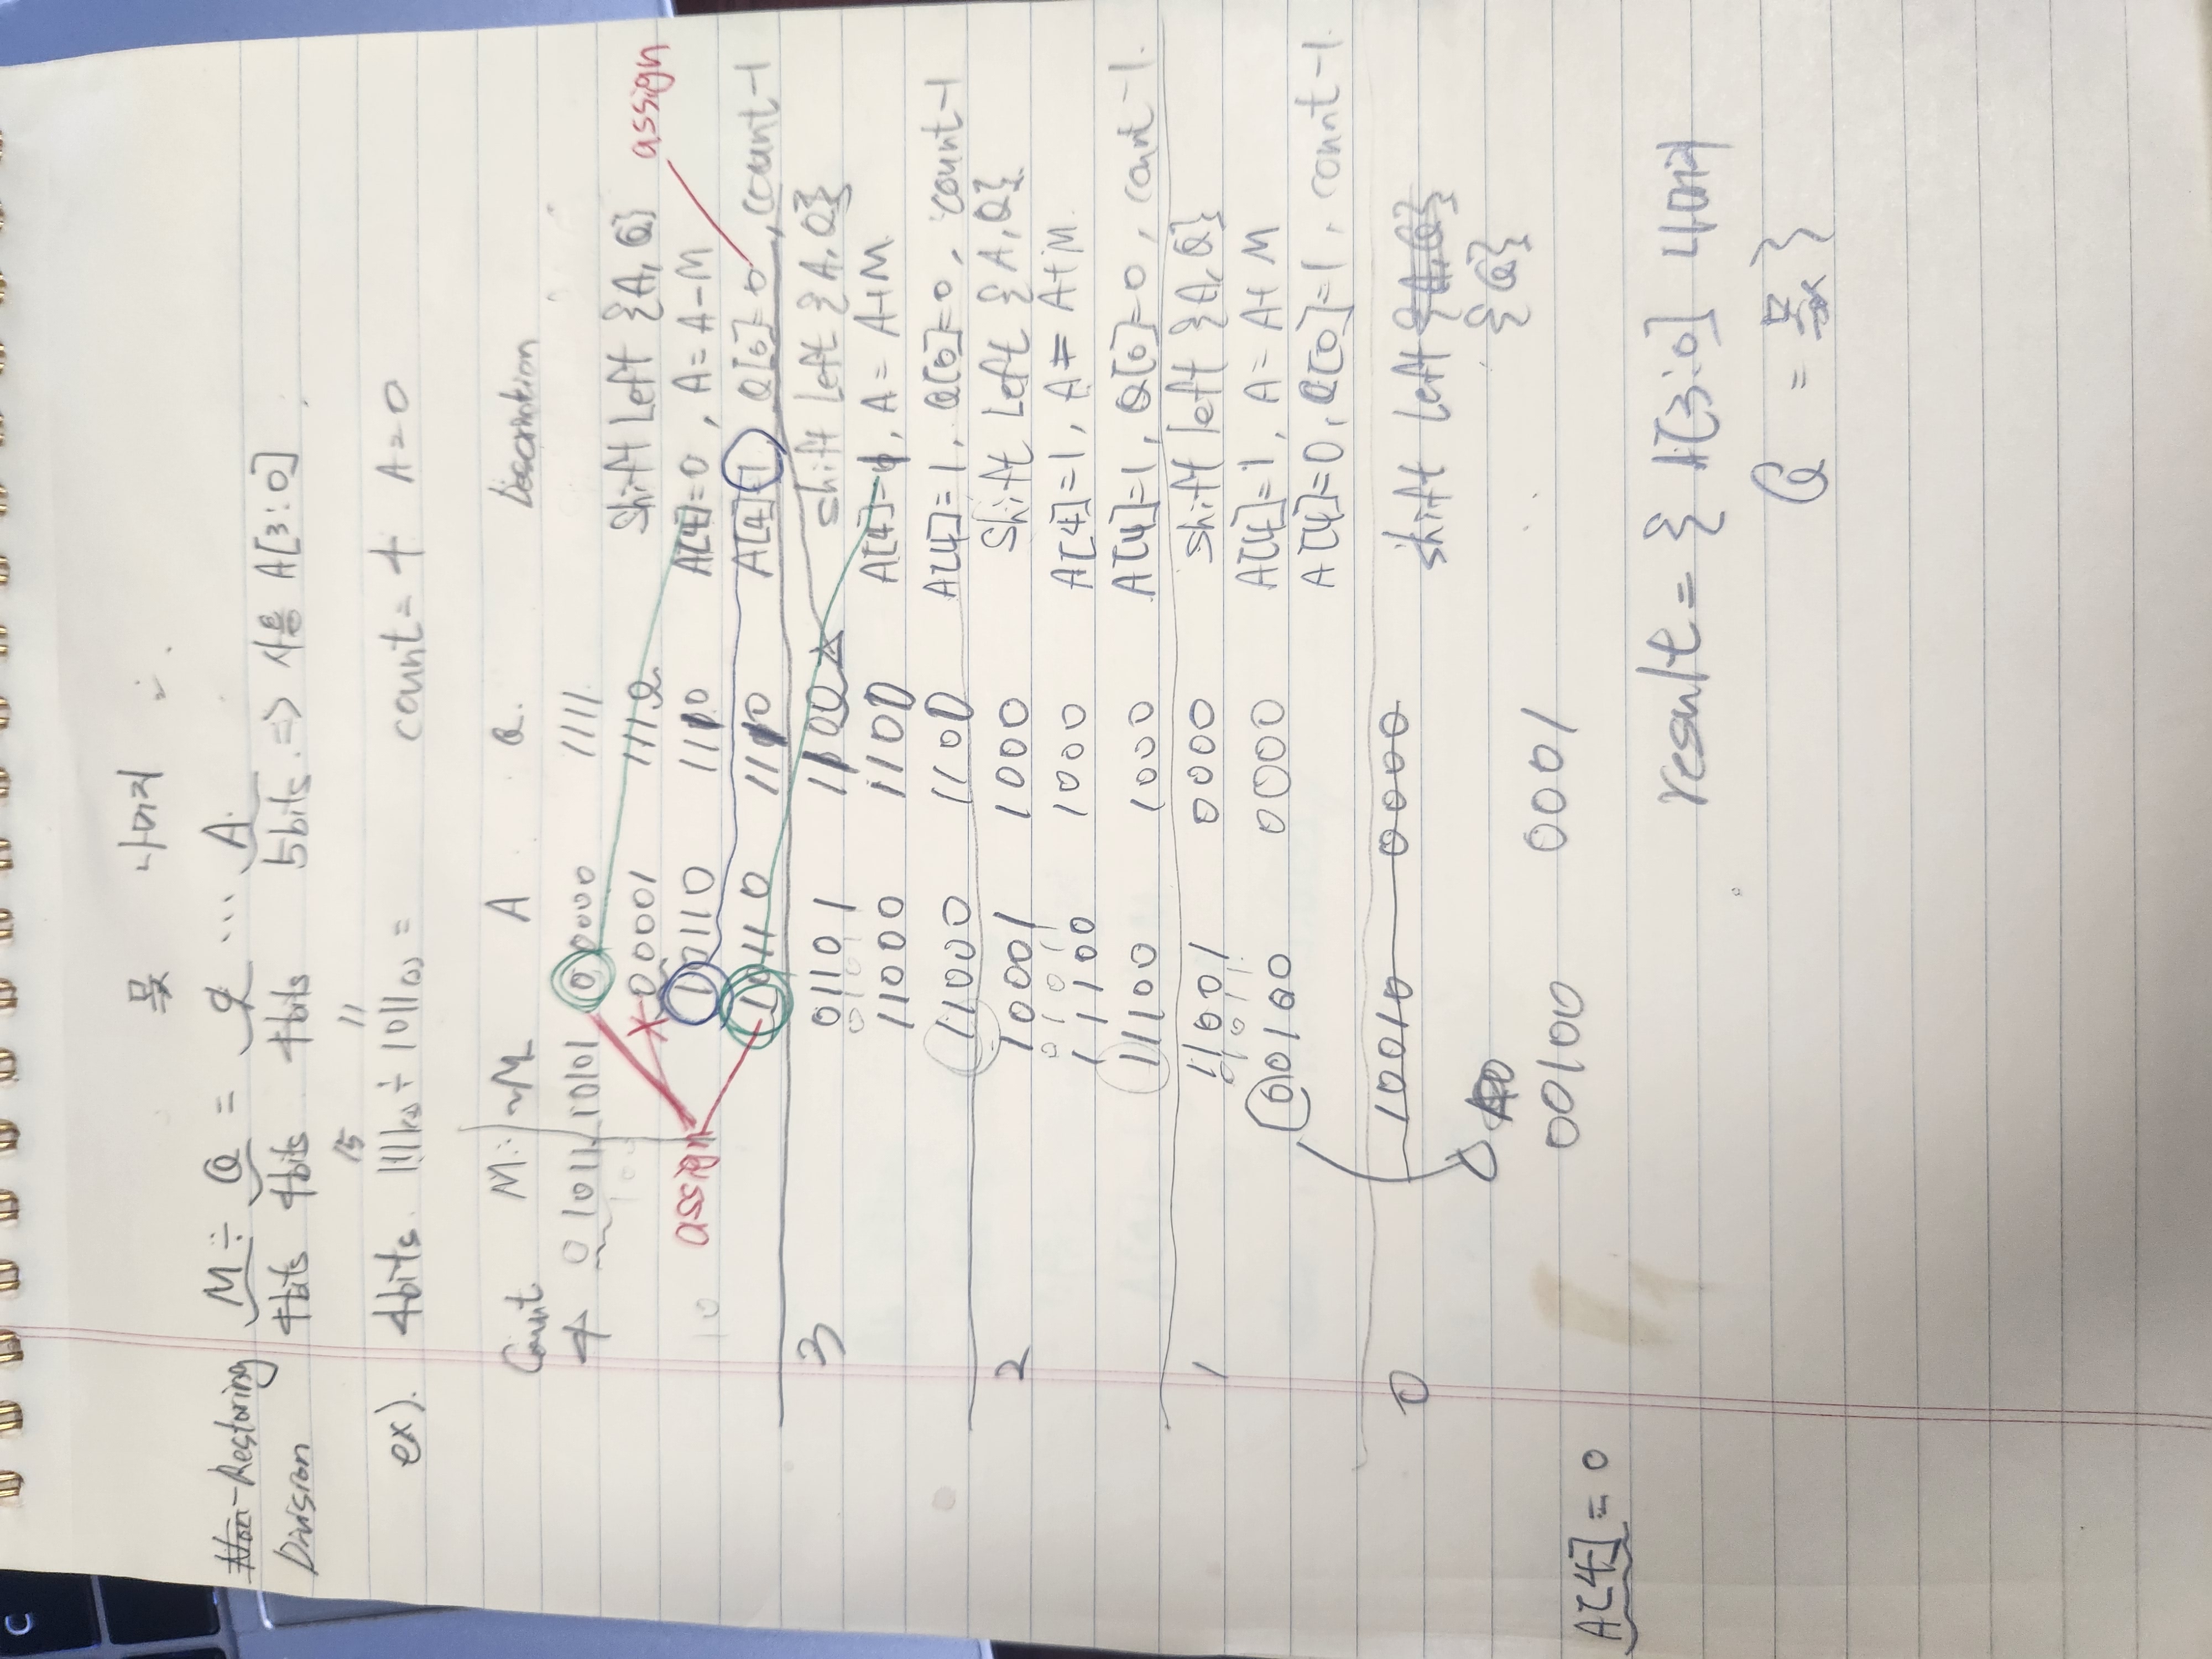 C
몫 나머지
Non-Restoring M ÷ Q = Q ... A.
Division 4bits 4bits 4bits 5bits. => 사용 A[3:0]
15 11
ex). 4bits. 1111(2) ÷ 1011(2) = count = 4 A=0
Count M ~M A Q. Description
4 01011 10101 00000 1111
00001 111 Shift Left {A, Q} assign
assign 10110 1110 A[4]=0, A=A-M
10110 1110 A[4]=1, Q[0]=0, count-1
3 01101 1100 shift left {A,Q}
11000 1100 A[4]=1, A = A+M
11000 1100 A[4]=1, Q[0]=0, count-1
2 10001 1000 Shift Left {A,Q}
01011
11100 1000 A[4]=1, A = A+M.
11100 1000 A[4]=1, Q[0]=0, count-1.
1 11001 0000 shift left {A,Q}
01011
00100 0000 A[4]=1, A = A+M
A[4]=0, Q[0]=1, count-1.
0 10010 0000 shift left {A,Q}
{Q}
00100 0001
A[4] = 0
result = { A[3:0] 나머지
Q = 몫 }